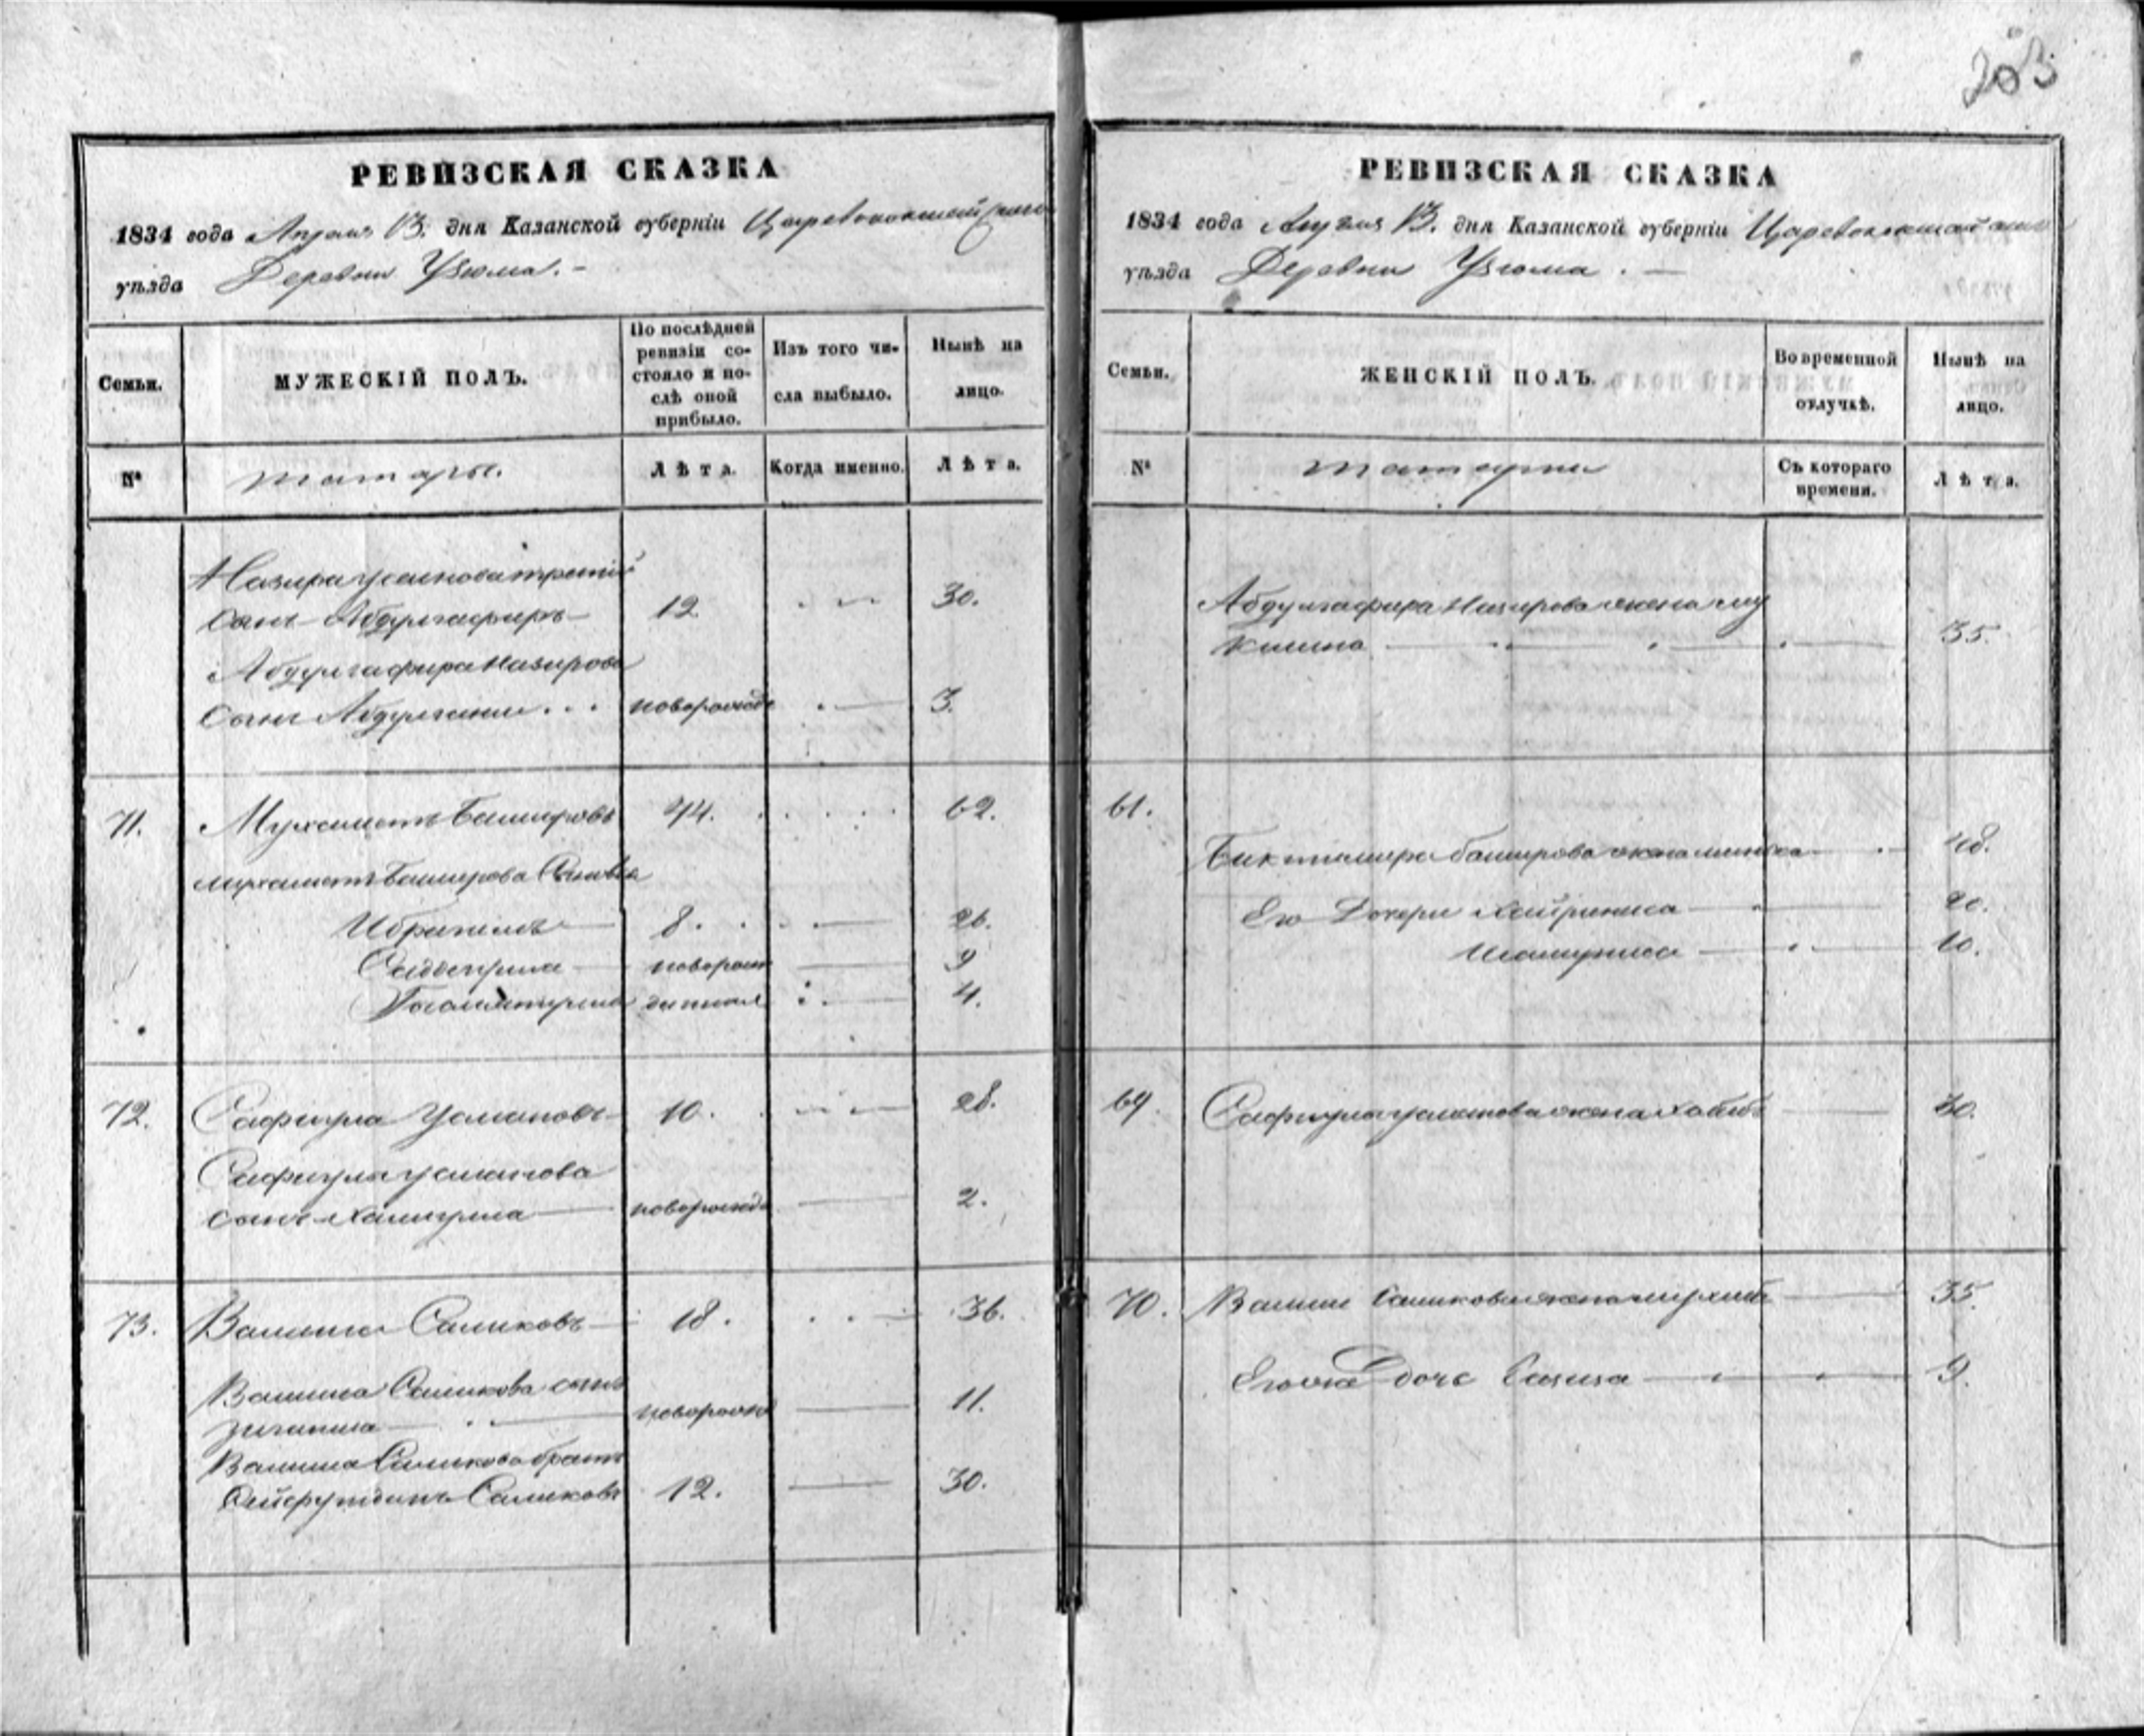 203
РЕВИЗСКАЯ СКАЗКА
1834 года Апреля 13. дня Казанской губерніи Царевококшайскаго
уѣзда Деревни Узюма. -
Семьи.
МУЖЕСКІЙ ПОЛЪ.
По послѣдней ревизіи со-
стояло и по-
слѣ оной
прибыло.
Изъ того чи-
сла выбыло.
Нынѣ на
лицо.
№
татары.
Лѣта.
Когда именно.
Лѣта.
Назира третій
Сынъ Абдулгафиръ 12 30.
Абдулгафира Назирова
Сынъ Абдулгани новорожде 3.
71. Мухаметъ Башировъ 44. 62.
Мухаметъ Баширова Сыновья
Ибрагимъ 8. 26.
новорож 9
4.
72. Сафиула Усмановъ 10. 28.
Сафиула Усманова
сынъ Хамиула новорожде 2.
73. Валиша Салиховъ 18. 36.
Валиша Салихова сынъ
Зиганша новорожд 11.
Валиша Салихова братъ
Сейфутдинъ Салиховъ 12. 30.
РЕВИЗСКАЯ СКАЗКА
1834 года Апреля 13. дня Казанской губерніи Царевококшайскаго
уѣзда Деревни Узюма. -
Семьи.
ЖЕНСКІЙ ПОЛЪ.
Во временной
отлучкѣ.
Нынѣ на
лицо.
№
татарки
Съ котораго
времени.
Лѣта.
Абдулгафира Назирова жена му
кмина 35.
61.
Биктимира Баширова жена 48.
Его Дочери Хайриниса 20.
Шамсуниса 10.
69. Сафиула Усманова жена Хабиб 30.
70. Валиши Салихова жена 35.
Его дочь Газиза 9.